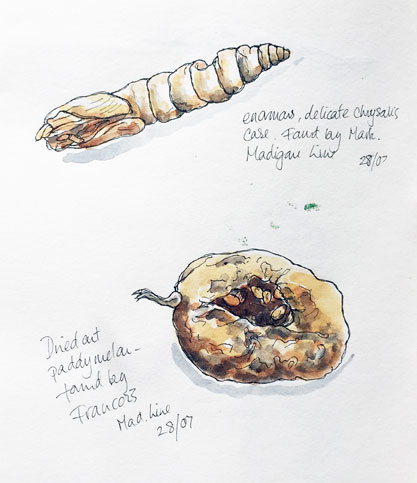 enormous, delicate chrysalis
case. Found by Mark.
Madigan Line
28/07
Dried out
paddymelon -
found by
Francois
Mad. Line
28/07